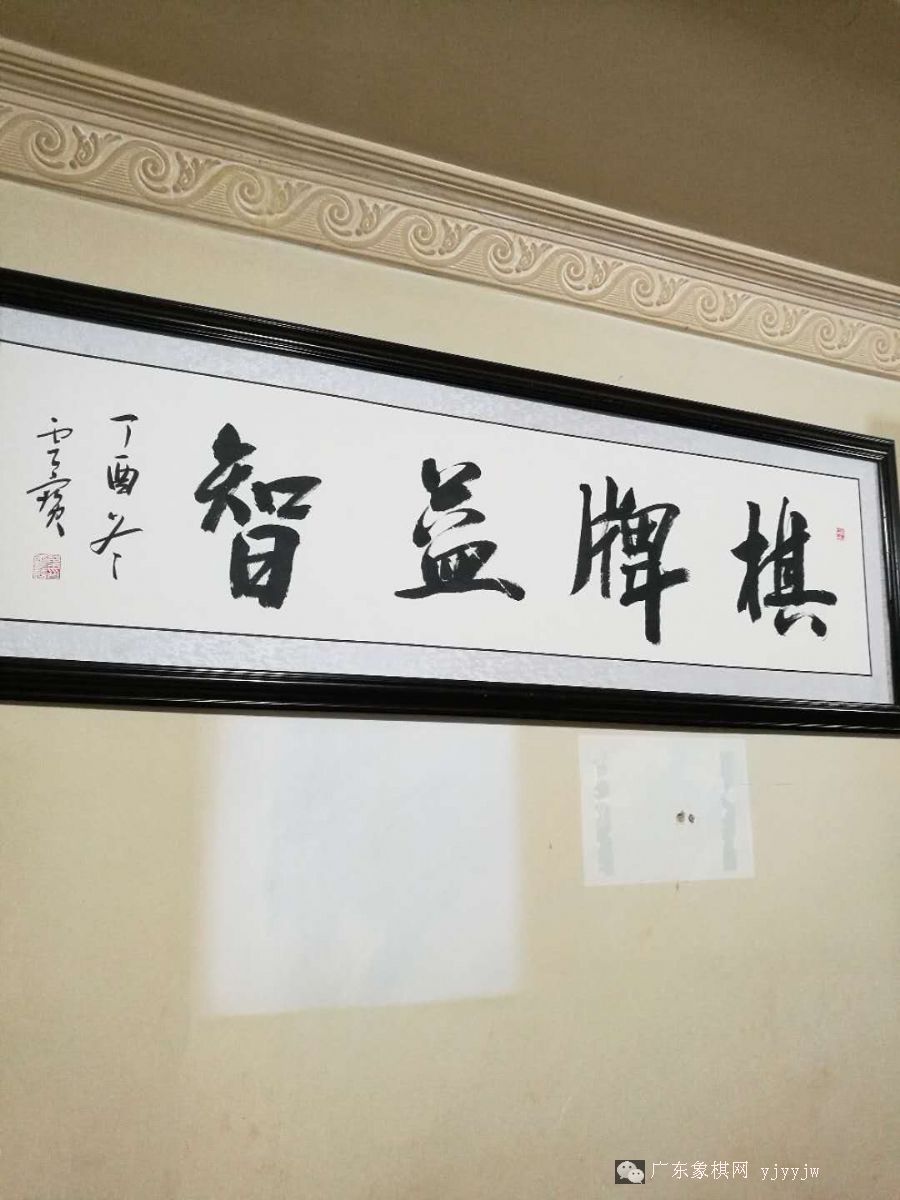 棋牌益智
丁酉冬
雲寶
广东象棋网 yjyyjw